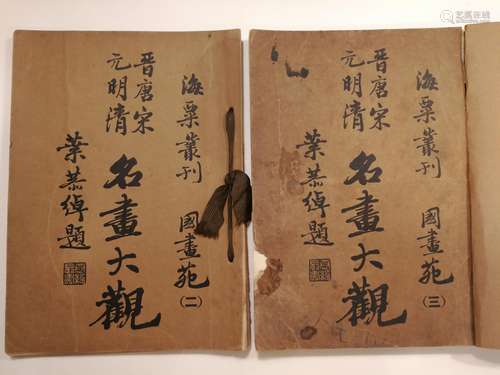 海粟叢刊 國畫苑(二)
晋唐宋
元明清
名畫大觀
葉恭綽題
海粟叢刊 國畫苑(三)
晋唐宋
元明清
名畫大觀
葉恭綽題